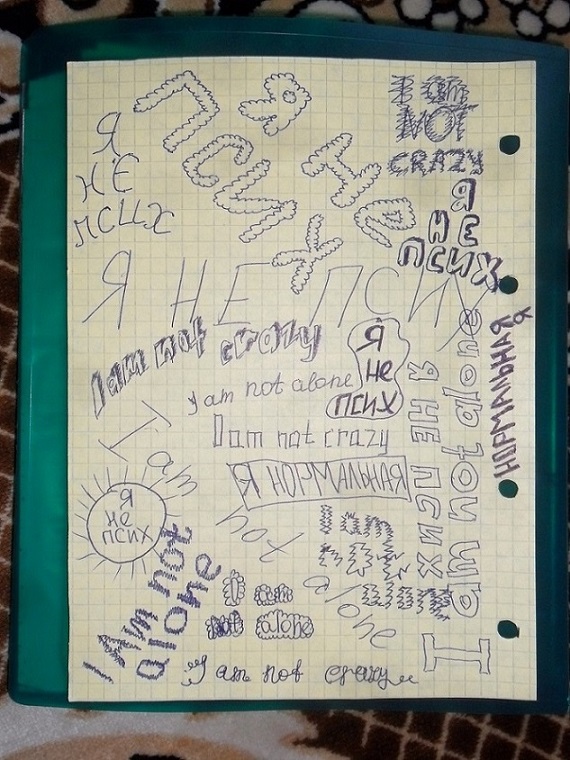 Я
НЕ
ПСИХ
Я
Не
ПСИХ
I am
NOT
CRAZY
Я
НЕ
ПСИХ
Я НЕ ПСИХ
I am not crazy
Я
не
псих
Я НОРМАЛЬНАЯ
I am not alone
I am not crazy
Я НЕ ПСИХ
I am not alone
Я НОРМАЛЬНАЯ
I am
not
alone
Я
не
псих
I am
I Am not
alone
I am
not alone
I am not crazy